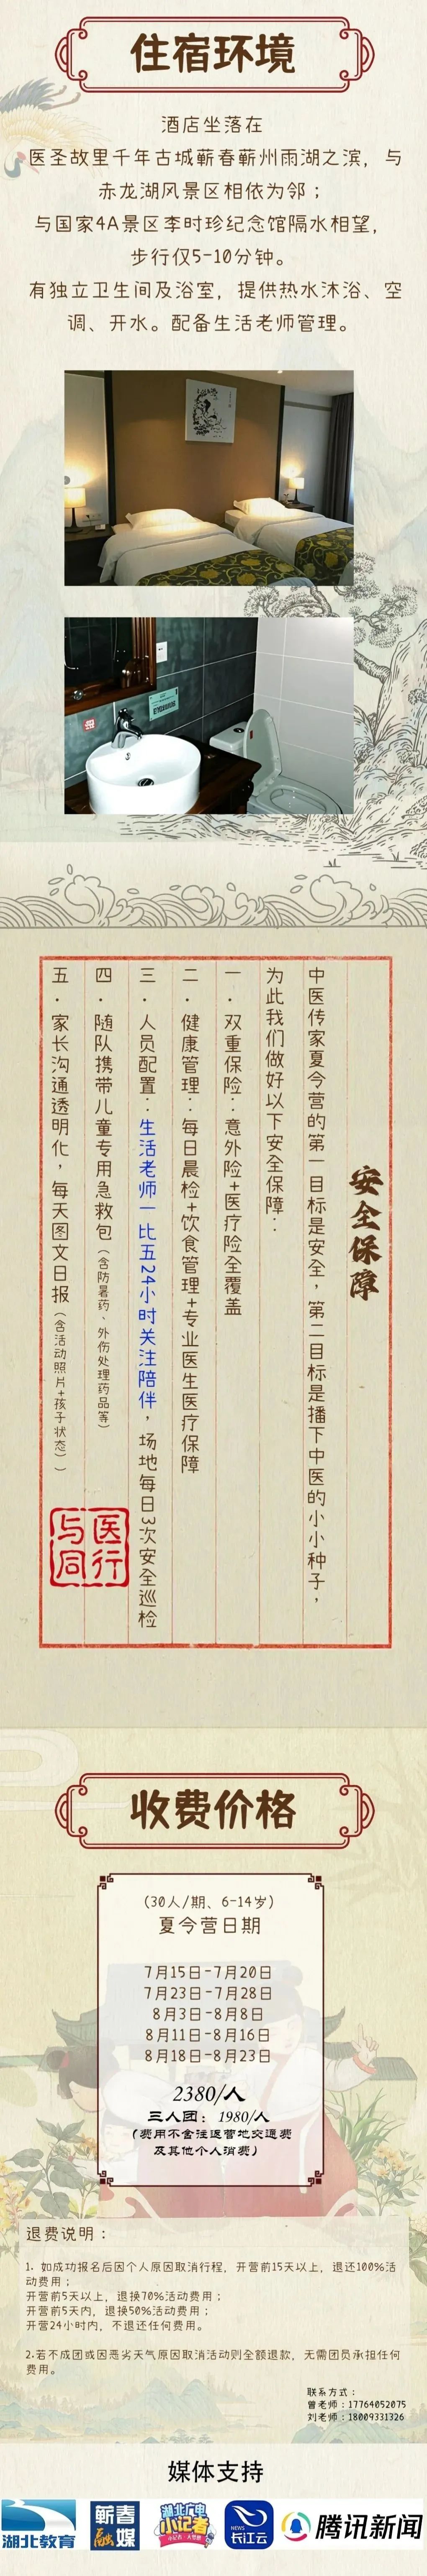 住宿环境
酒店坐落在
医圣故里千年古城蕲春蕲州雨湖之滨，与
赤龙湖风景区相依为邻；
与国家4A景区李时珍纪念馆隔水相望，
步行仅5-10分钟。
有独立卫生间及浴室，提供热水沐浴、空
调、开水。配备生活老师管理。
安全保障
中医传家夏令营的第一目标是安全，第二目标是播下中医的小小种子，
为此我们做好以下安全保障：
一．双重保险：意外险+医疗险全覆盖
二．健康管理：每日晨检+饮食管理+专业医生医疗保障
三．人员配置：生活老师一比五24小时关注陪伴，场地每日3次安全巡检
四．随队携带儿童专用急救包（含防暑药、外伤处理药品等）
五．家长沟通透明化，每天图文日报（含活动照片+孩子状态））
医行
与同
收费价格
（30人/期、6-14岁）
夏令营日期
7月15日-7月20日
7月23日-7月28日
8月3日-8月8日
8月11日-8月16日
8月18日-8月23日
2380/人
三人团：1980/人
（费用不含往返营地交通费
及其他个人消费）
退费说明：
1. 如成功报名后因个人原因取消行程，开营前15天以上，退还100%活
动费用；
开营前5天以上，退换70%活动费用；
开营前5天内，退换50%活动费用；
开营24小时内，不退还任何费用。
2.若不成团或因恶劣天气原因取消活动则全额退款，无需团员承担任何
费用。
联系方式：
曾老师：17764052075
刘老师：18009331326
媒体支持
湖北教育
蕲春融媒
湖北广电
小记者
NEWS
长江云
腾讯新闻